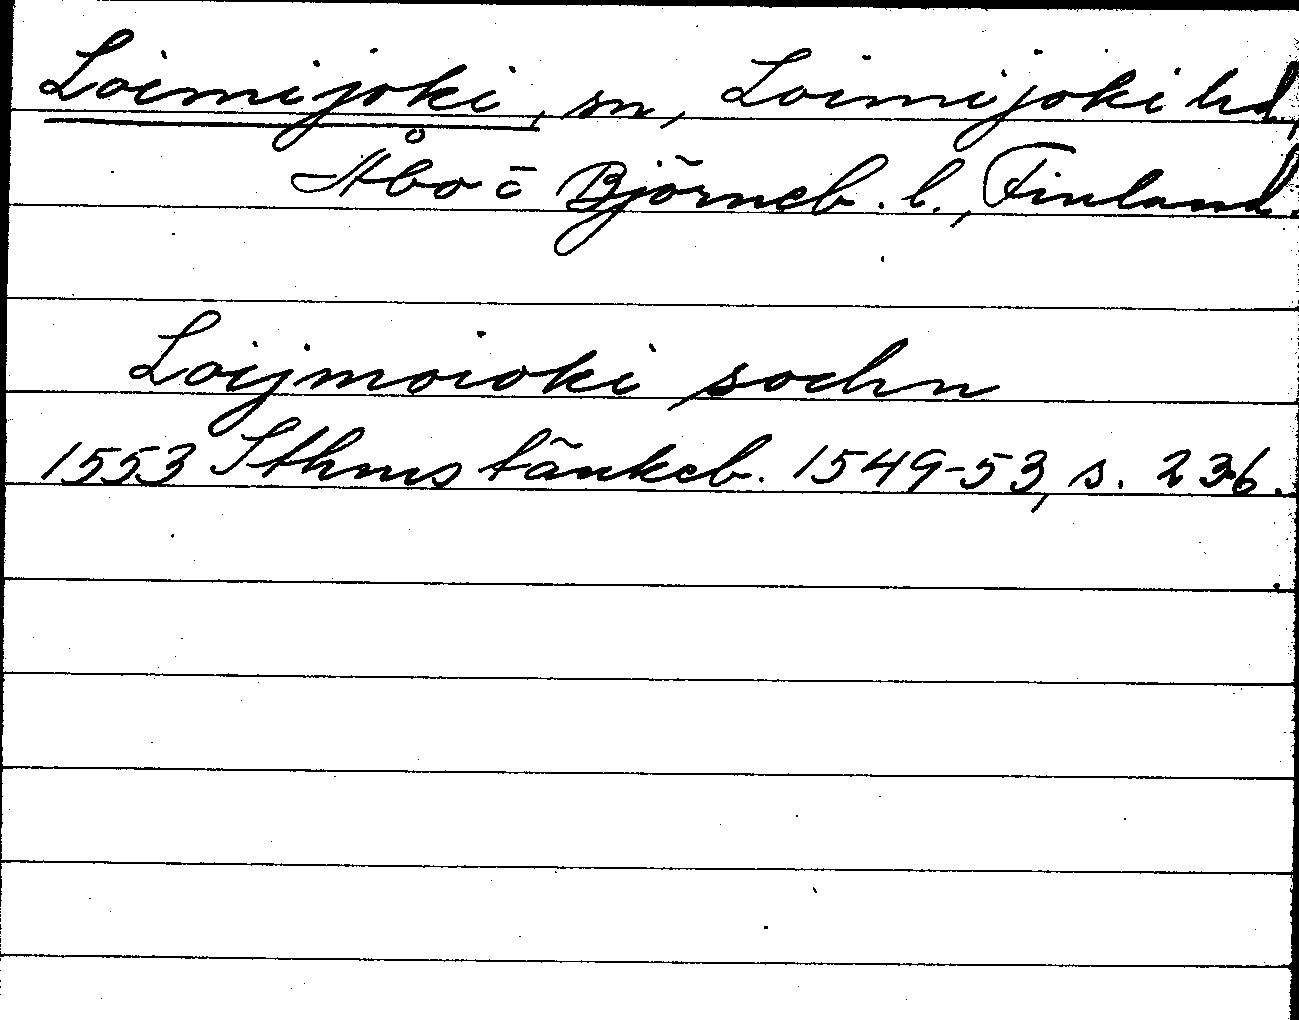 Loimijoki, sn, Loimijoki hd,
Åbo o Björneb. l., Finland.
Loijmoioki sochn
1553 Sthms tänkeb. 1549-53, s. 236.